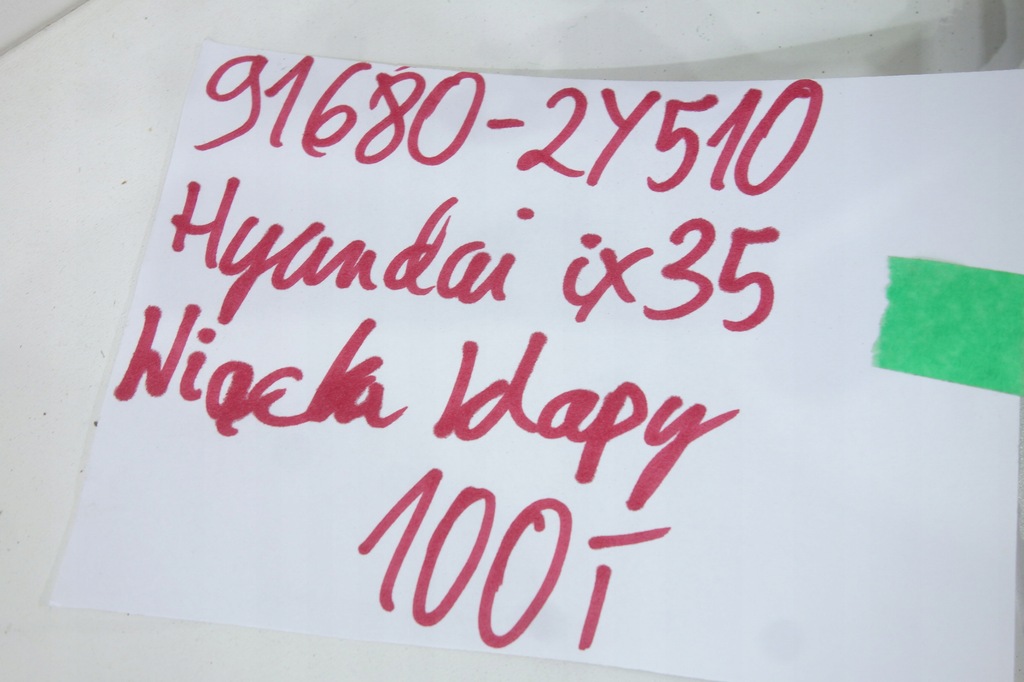 91680-2Y510
Hyundai ix35
Wiązka klapy
100